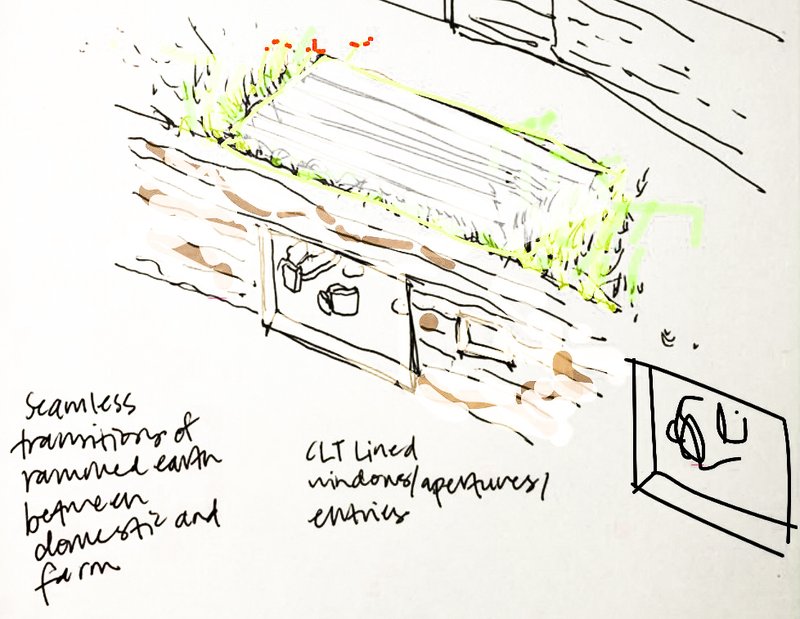 Seamless
transitions of
rammed earth
between
domestic and
farm
CLT Lined
windows/apertures/
entries